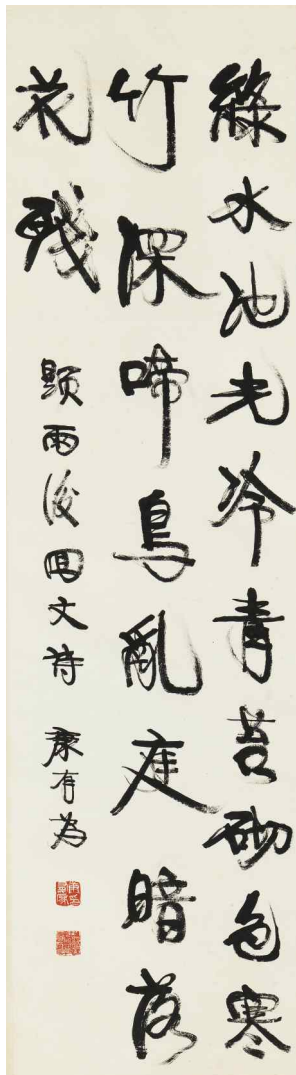 綠水池光冷青苔砌色寒
竹深啼鳥亂庭暗落
花殘
題雨後回文詩 康有為